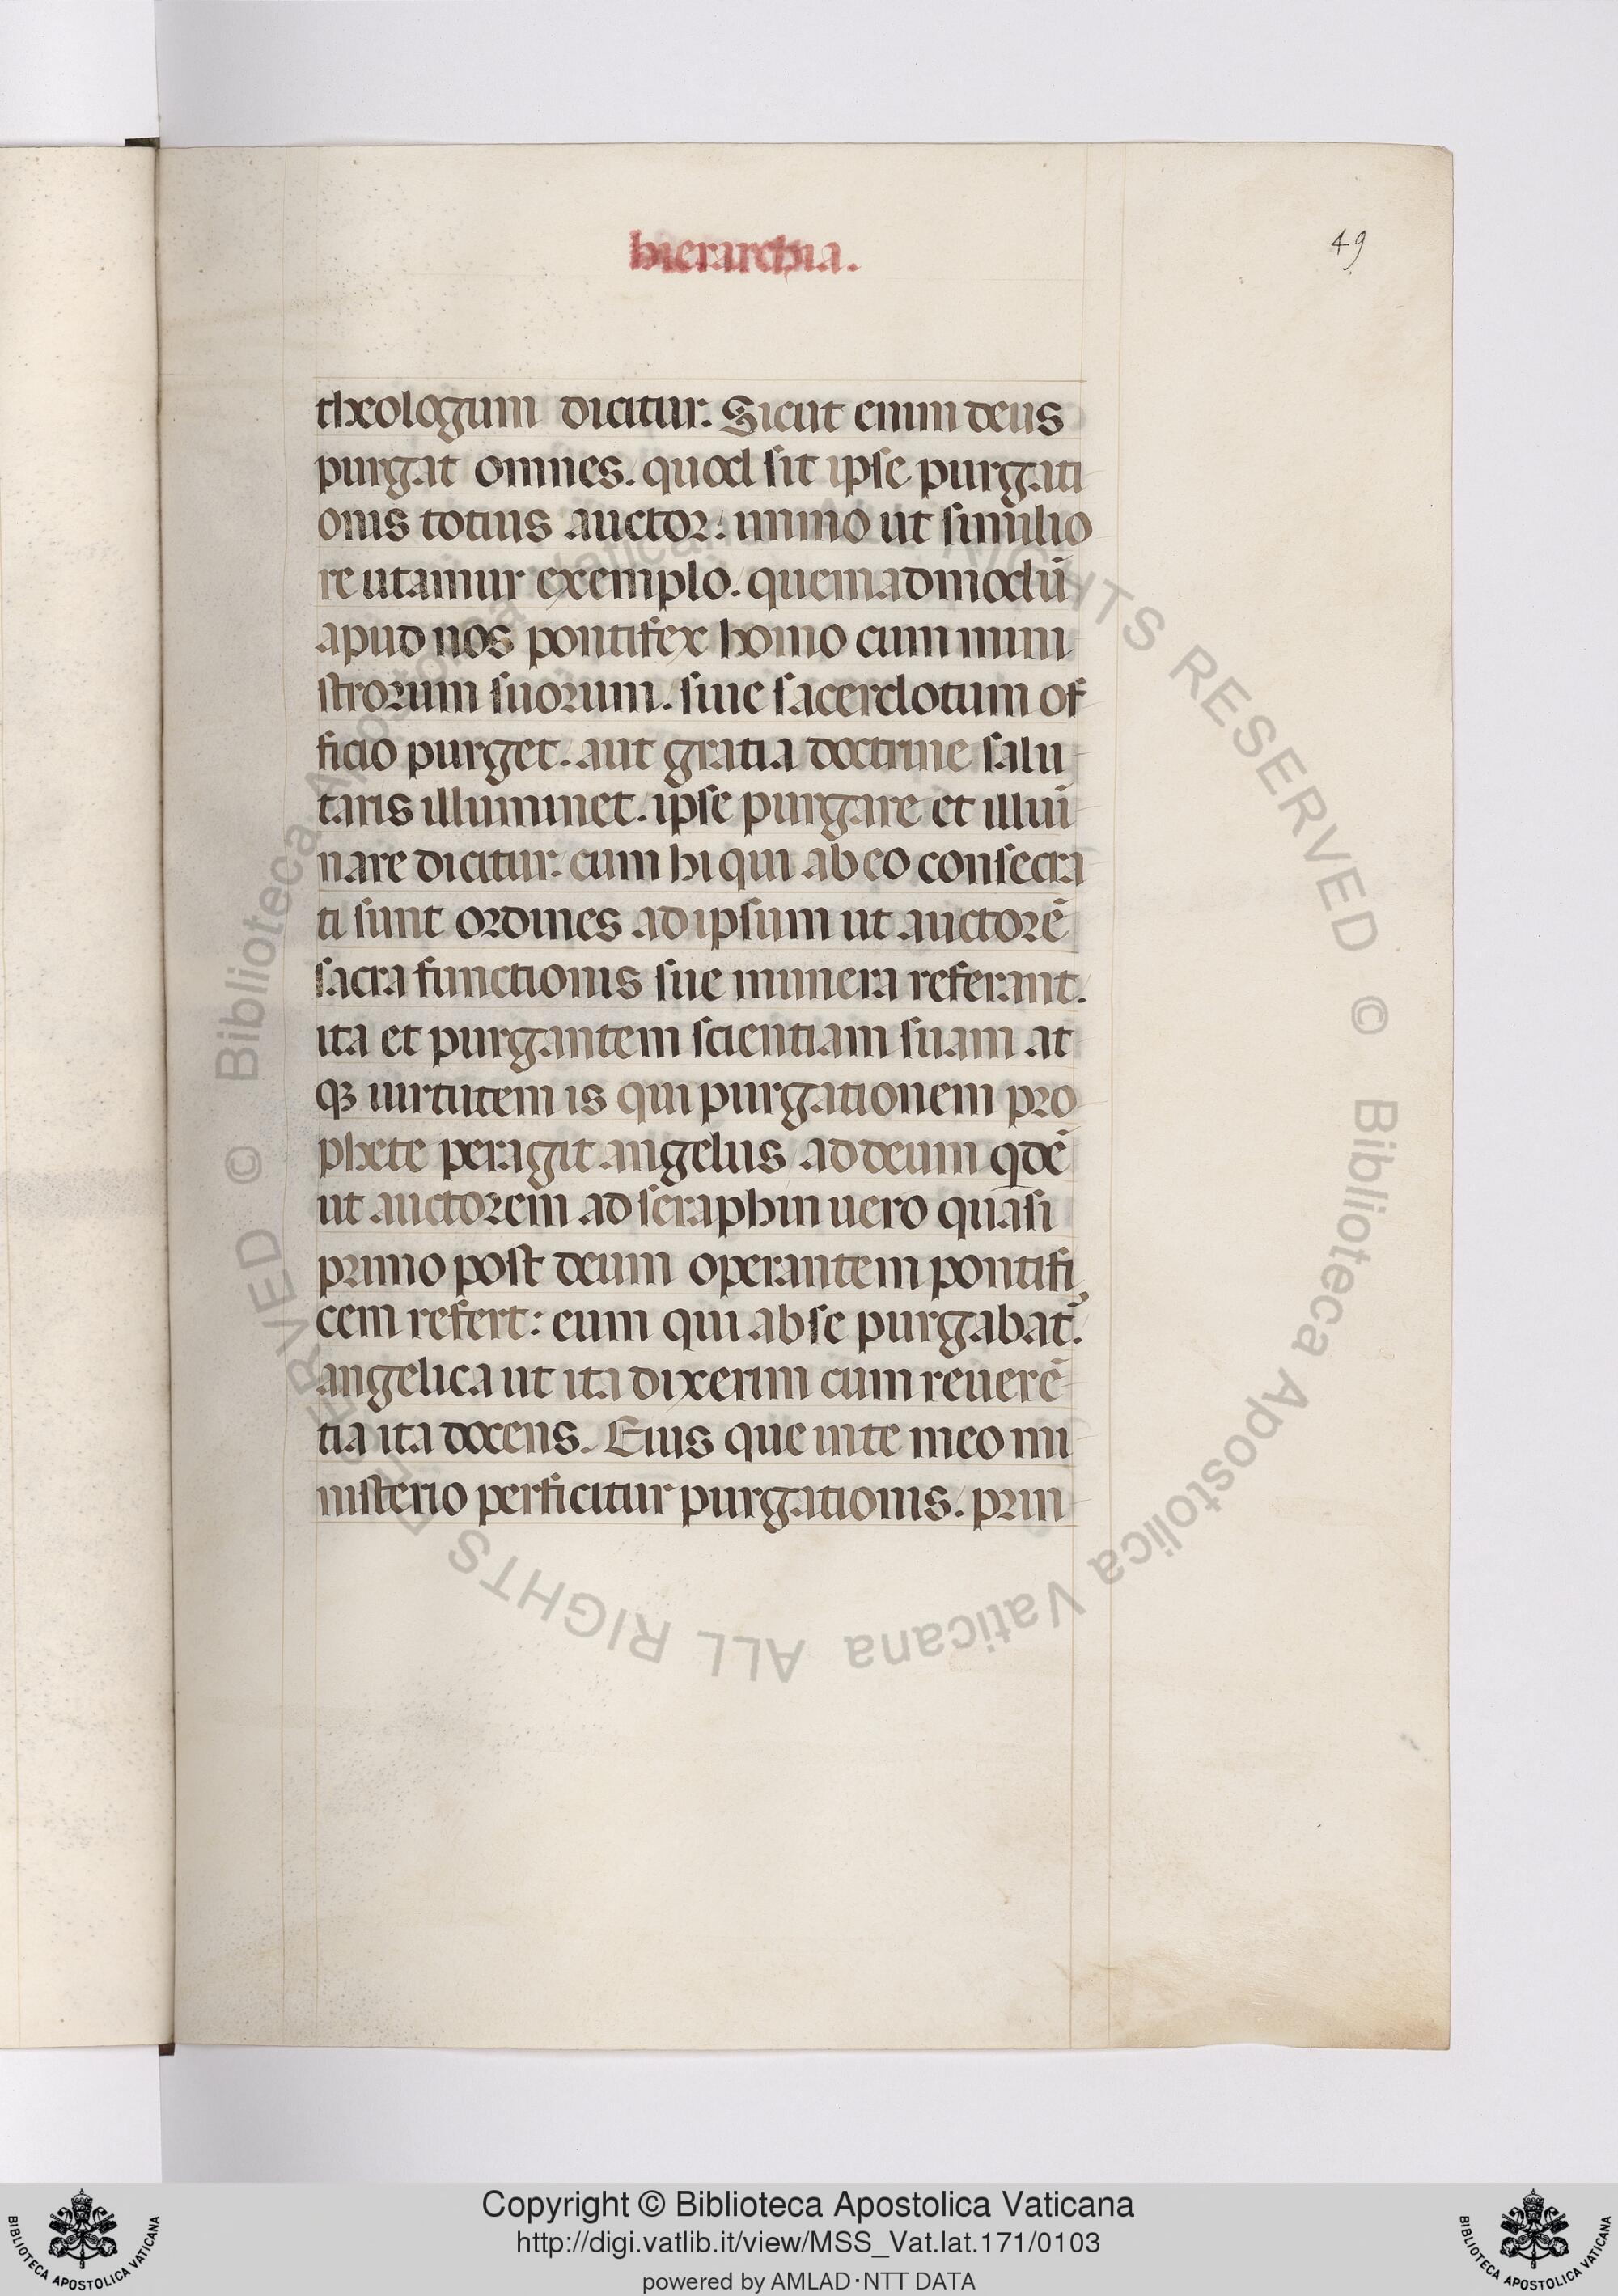 hierarchia.
49
theologum dicitur. Sicut enim deus
purgat omnes. quod sit ipse purgati
onis totius auctor: immo ut similio
re utamur exemplo. quemadmodū
apud nos pontifex homo cum mini
strorum suorum. siue sacerdotum of
ficio purget. aut gratia doctrine salu
taris illuminet. ipse purgare et illuī
nare dicitur. cum hi qui ab eo consecra
ti sunt ordines ad ipsum ut auctorē
sacra functionis sue munera referant.
ita et purgantem scientiam suam at
qȝ uirtutem is qui purgationem pro
phete peragit angelus ad deum qdē
ut auctorem ad seraphin uero quasi
primo post deum operantem pontifi
cem refert: eum qui ab se purgabat̄.
angelica ut ita dixerim cum reuerē
tia ita docens. Eius que in te meo mi
nisterio perficitur purgationis. prin
© Biblioteca Apostolica Vaticana ALL RIGHTS RESERVED © Biblioteca Apostolica Vaticana ALL RIGHTS RESERVED
Copyright © Biblioteca Apostolica Vaticana
http://digi.vatlib.it/view/MSS_Vat.lat.171/0103
powered by AMLAD·NTT DATA
BIBLIOTECA APOSTOLICA VATICANA
BIBLIOTECA APOSTOLICA VATICANA